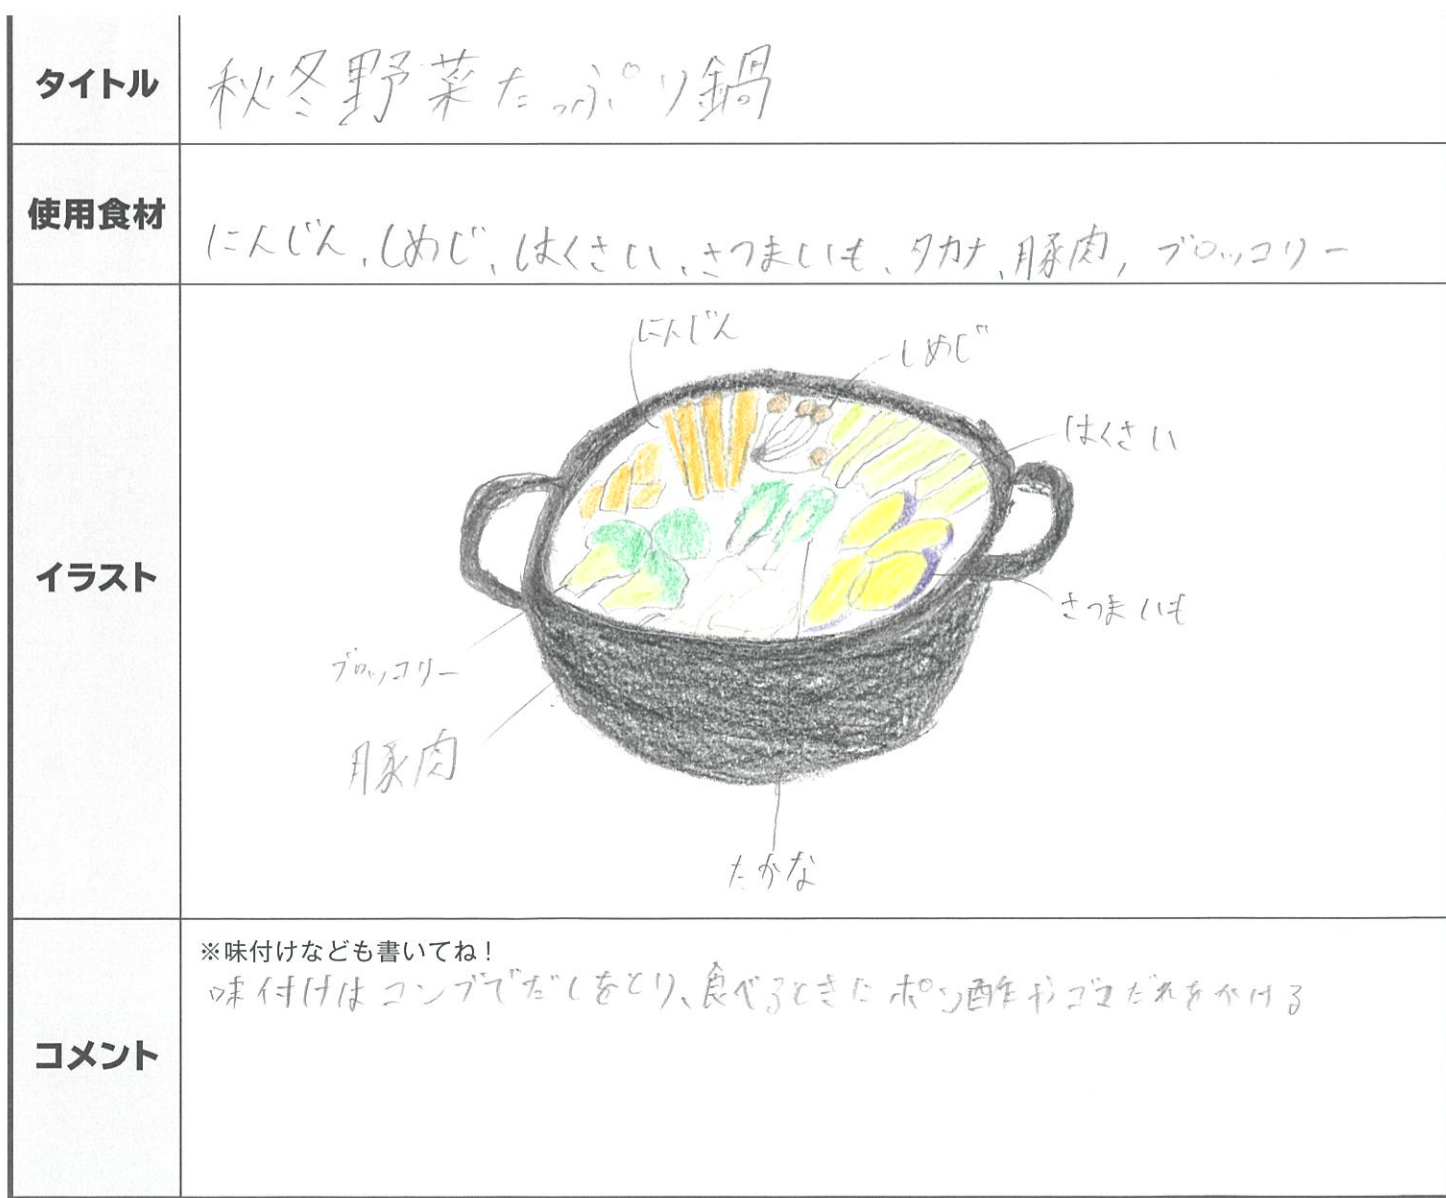 タイトル
秋冬野菜たっぷり鍋
使用食材
にんじん、しめじ、はくさい、さつまいも、タカナ、豚肉, ブロッコリー
イラスト
にんじん
しめじ
はくさい
さつまいも
ブロッコリー
豚肉
たかな
コメント
※味付けなども書いてね！
味付けはコンブでだしをとり、食べるときにポン酢やゴマだれをかける